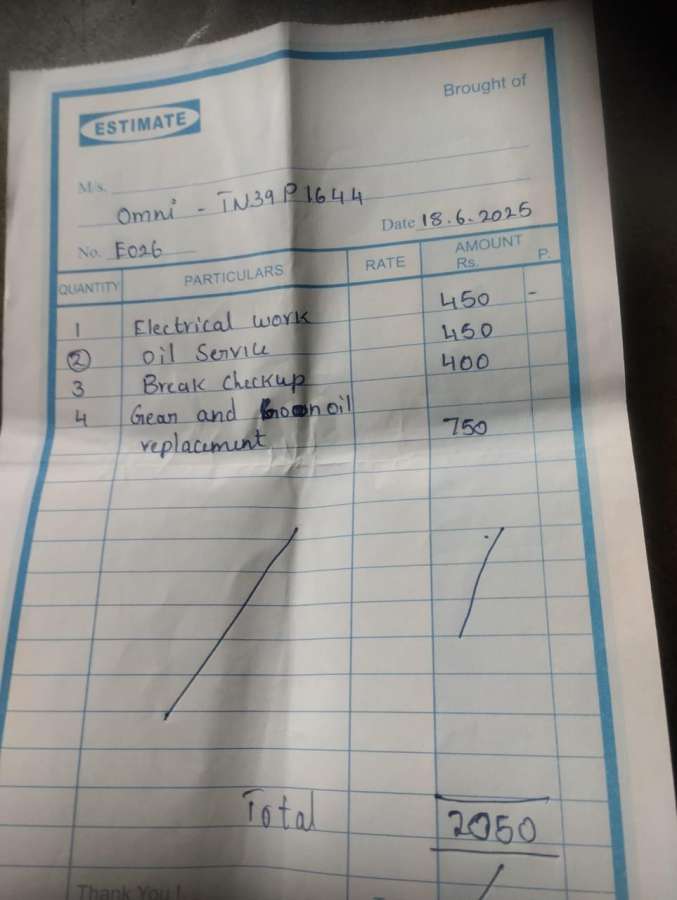 Brought of
ESTIMATE
M/s.
Omni - TN39P1644
Date 18.6.2025
No. E026
QUANTITY PARTICULARS RATE AMOUNT Rs. P.
1 Electrical work 450 -
2 oil Service 450
3 Break checkup 400
4 Gear and oil
replacement 750
Total 2050
Thank You !